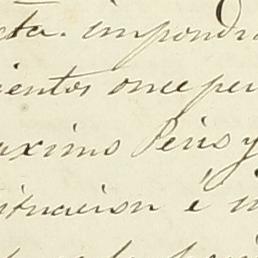 cta. impondra
ientos once pe
aximo Peris y
ituacion é in